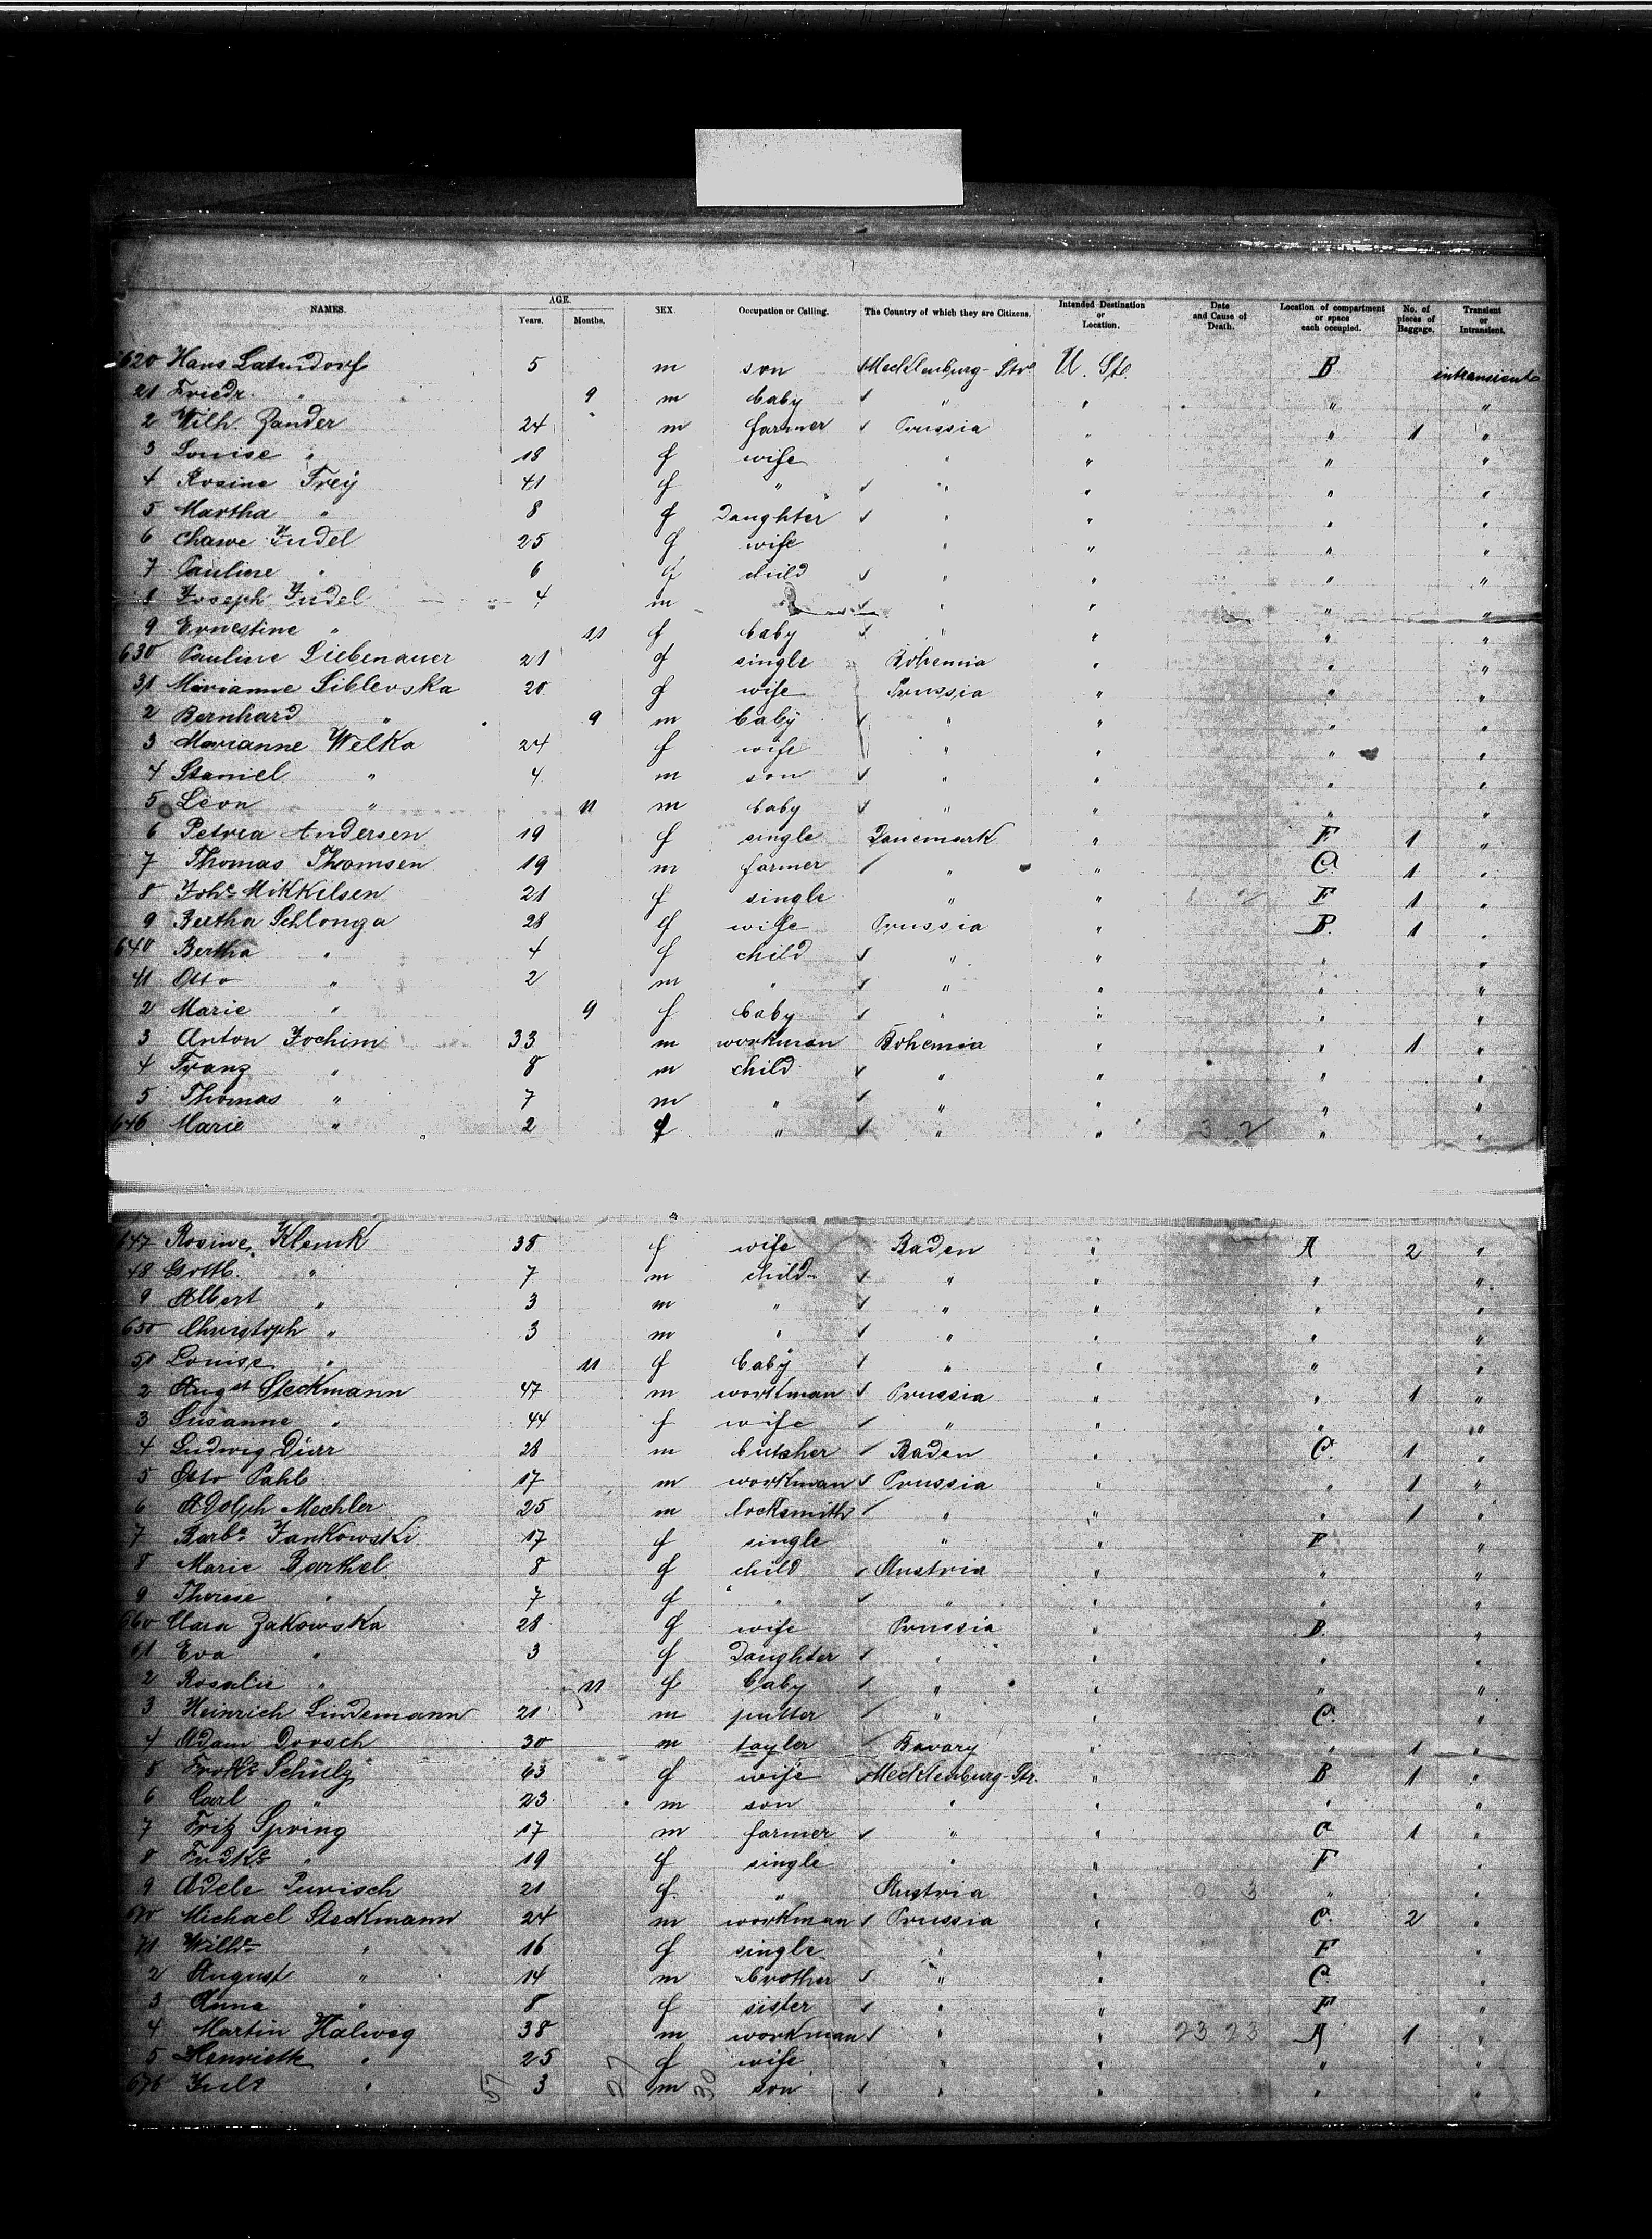 NAMES. AGE. Years. Months. SEX Occupation or Calling. The Country of which they are Citizens. Intended Destination or Location. Date and Cause of Death. Location of compartment or space each occupied. No. of pieces of Baggage. Transient or Intransient.
620 Hans Latendorf 5 m son Mecklenburg-Stre U. St. B intransient
21 Friedr. " 9 m baby " " " "
2 Wilh. Zander 24 m farmer Prussia " " 1 "
3 Louise " 18 f wife " " " "
4 Rosine Frey 41 f " " " " "
5 Martha " 8 f Daughter " " " "
6 Chawe Judel 25 f wife " " " "
7 Pauline " 6 f child " " " "
8 Joseph Judel 4 m " " " "
9 Ernestine " 11 f baby " " " "
630 Pauline Liebenauer 21 f single Bohemia " " "
31 Marianne Siblevska 20 f wife Prussia " " "
2 Bernhard " 9 m baby " " " "
3 Marianne Welka 24 f wife " " " "
4 Staniel " 4 m son " " " "
5 Leon " 11 m baby " " " "
6 Petrea Andersen 19 f single Danemark " F 1 "
7 Thomas Thomsen 19 m farmer " " C. 1 "
8 Johe Mikkelsen 21 f single " " F 1 "
9 Bertha Schlonga 28 f wife Prussia " B. 1 "
640 Bertha " 4 f child " " " "
41 Otto " 2 m " " " " "
2 Marie " 9 f baby " " " "
3 Anton Jochim 33 m workman Bohemia " " 1 "
4 Franz " 8 m child " " " "
5 Thomas " 7 m " " " " "
646 Marie " 2 f " " " 3 2 " "
647 Rosine Klenk 38 f wife Baden " A 2 "
48 Gottl. " 7 m child " " " "
9 Albert " 3 m " " " " "
650 Christoph " 3 m " " " " "
51 Louise " 11 f baby " " " "
2 Augst Steckmann 47 m workman Prussia " " 1 "
3 Susanne " 44 f wife " " " "
4 Ludwig Dürr 28 m butcher Baden " C. 1 "
5 Otto Pahl 17 m workman Prussia " " 1 "
6 Adolph Mechler 25 m locksmith " " " 1 "
7 Barba Jankowski 17 f single " " F "
8 Marie Barthel 8 f child Austria " " "
9 Therese " 7 f " " " " "
660 Clara Zakowska 28 f wife Prussia " B. "
61 Eva " 3 f Daughter " " " "
2 Rosalie " 11 f baby " " " "
3 Heinrich Lindemann 21 m putter " " C. "
4 Adam Dorsch 30 m tayler Bavary " " 1 "
5 Schulz 63 f wife Mecklenburg-Str. " B 1 "
6 Carl " 23 m son " " " "
7 Fritz Spring 17 m farmer " " C 1 "
8 " 19 f single " " F "
9 Adele Purisch 21 f " Austria " 0 3 " "
670 Michael Steckmann 24 m workman Prussia " C. 2 "
71 Willhe " 16 f single " " F "
2 August " 14 m brother " " C. "
3 Anna " 8 f sister " " F "
4 Martin Halweg 38 m workman " " 23 23 A 1 "
5 Henriette " 25 f wife " " " "
676 " 3 m son " " " "
57 27 30